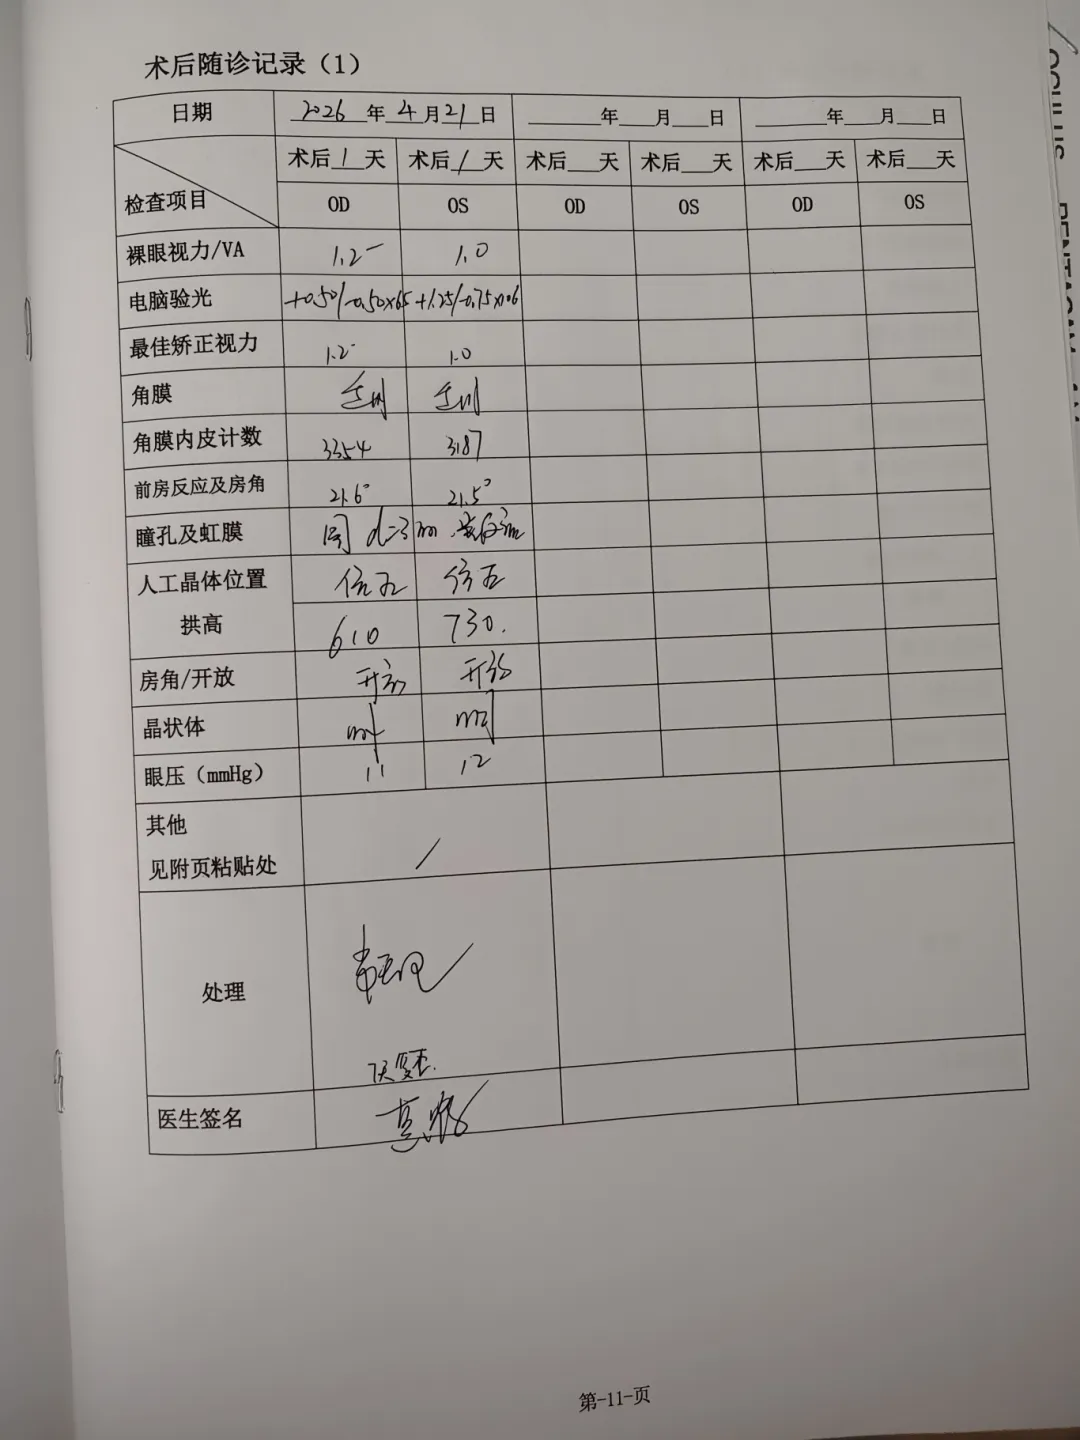 术后随诊记录（1）
日期 2026年4月21日 ____年__月__日 ____年__月__日
检查项目 术后1天 术后1天 术后__天 术后__天 术后__天 术后__天
OD OS OD OS OD OS
裸眼视力/VA 1.2⁻ 1.0
电脑验光 +0.50/-0.50×65 +1.25/-0.75×106
最佳矫正视力 1.2⁻ 1.0
角膜
角膜内皮计数 3354 3187
前房反应及房角 21.6° 21.5°
瞳孔及虹膜 d=3mm
人工晶体位置
拱高 610 730.
房角/开放 开放 开放
晶状体
眼压（mmHg） 11 12
其他
见附页粘贴处 /
处理
7天复查.
医生签名
第-11-页
OCULUS PENTACAM